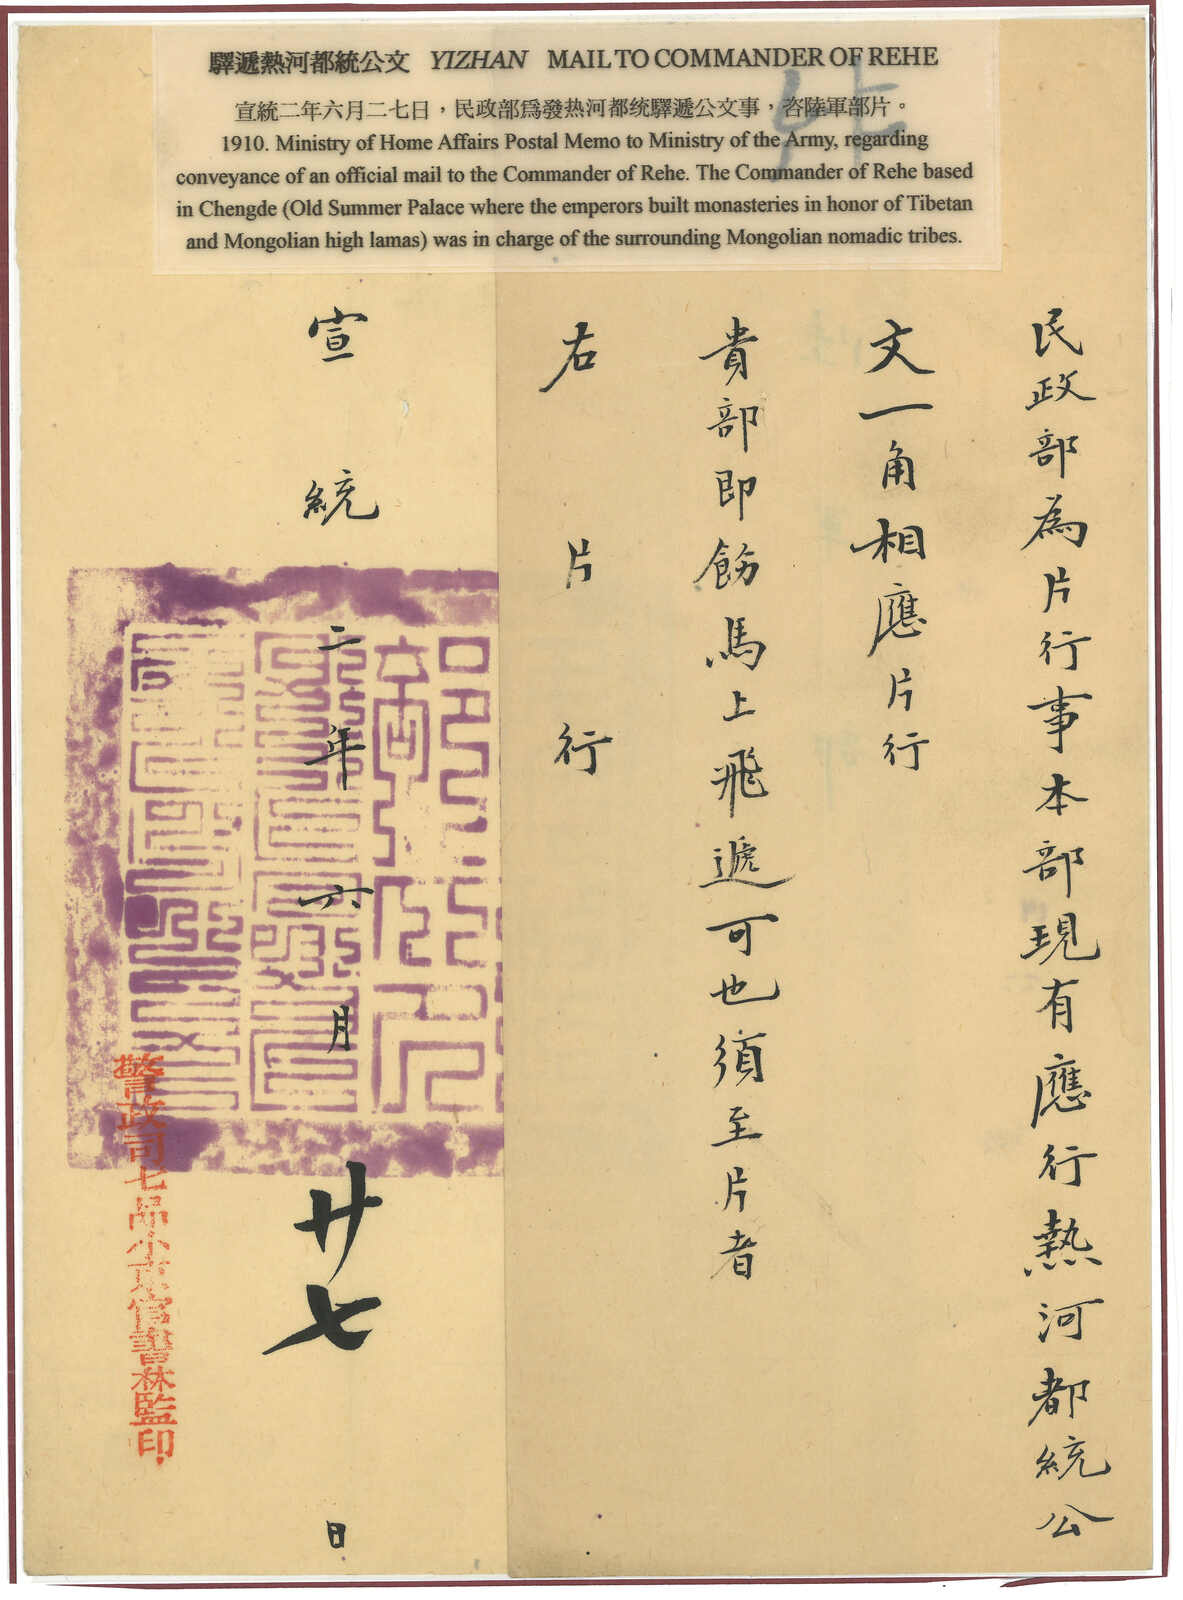 驛遞熱河都統公文 YIZHAN MAIL TO COMMANDER OF REHE
宣統二年六月二七日，民政部爲發热河都统驛遞公文事，咨陸軍部片。
1910. Ministry of Home Affairs Postal Memo to Ministry of the Army, regarding
conveyance of an official mail to the Commander of Rehe. The Commander of Rehe based
in Chengde (Old Summer Palace where the emperors built monasteries in honor of Tibetan
and Mongolian high lamas) was in charge of the surrounding Mongolian nomadic tribes.
民政部為片行事本部現有應行熱河都統公
文一角相應片行
貴部即飭馬上飛遞可也須至片者
右片行
宣統二年六月廿七日
警政司七品小京官書林監印